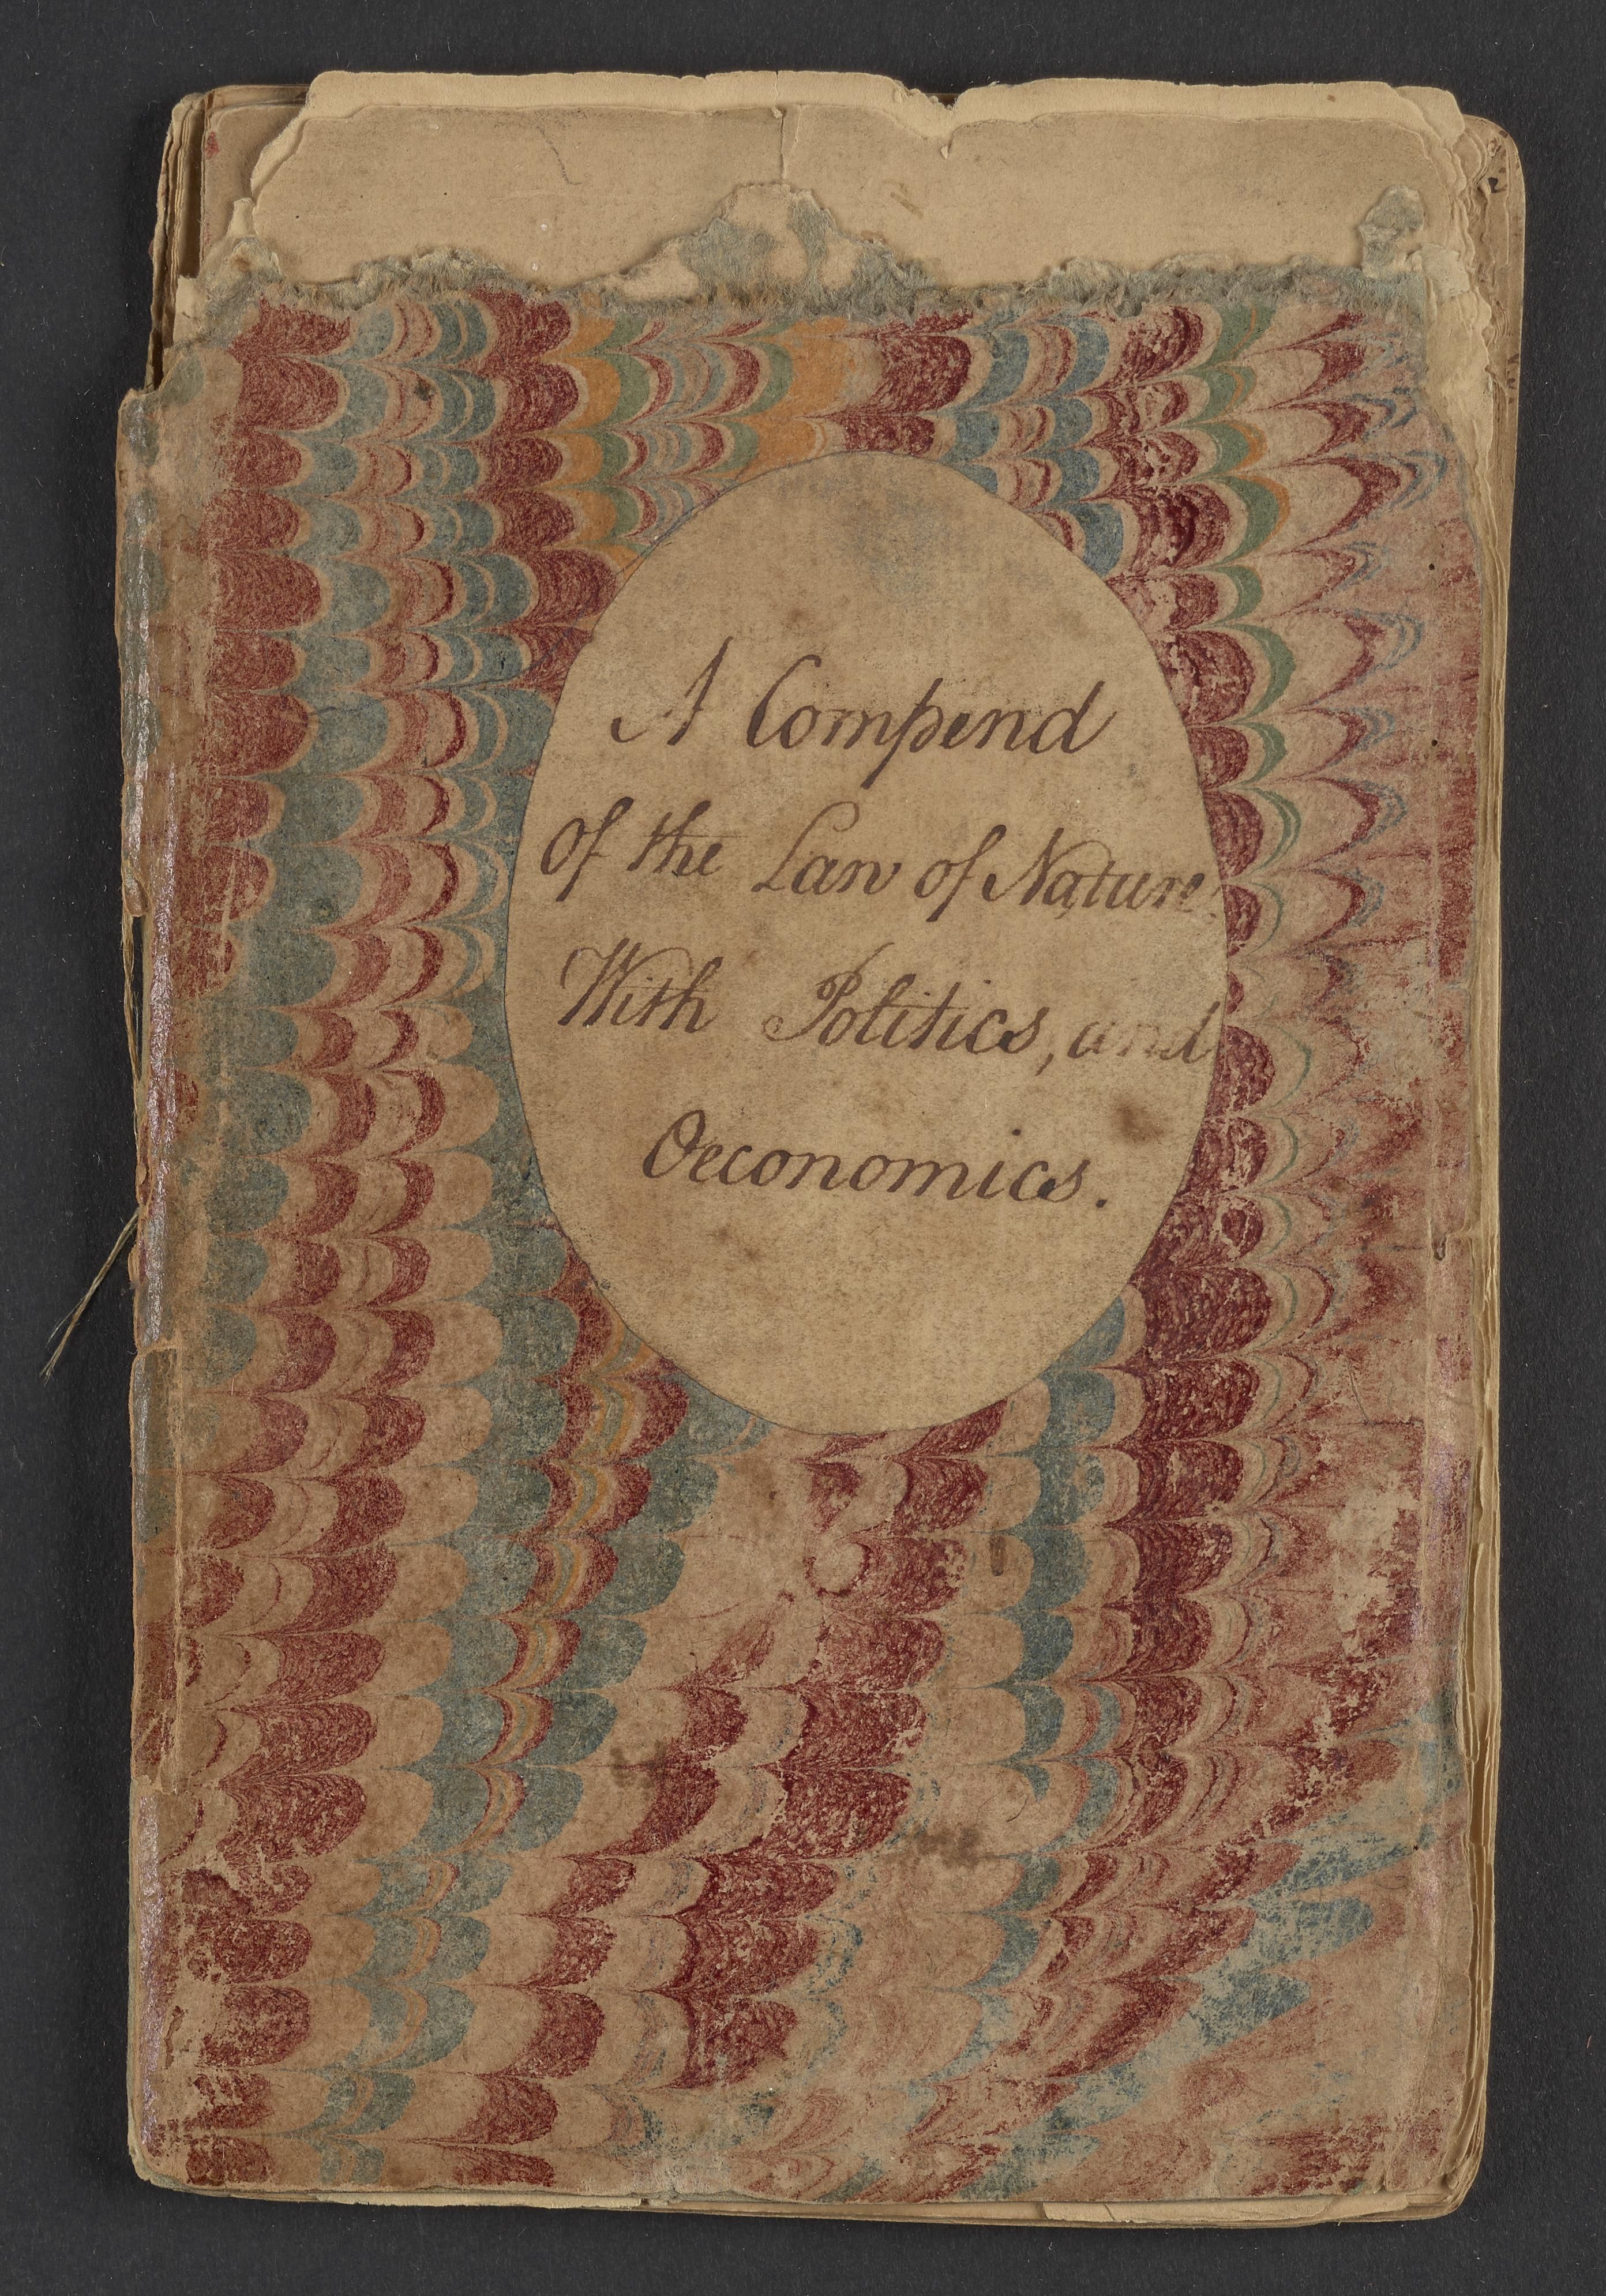 A Compend
of the Law of Nature.
With Politics, and
Oeconomics.